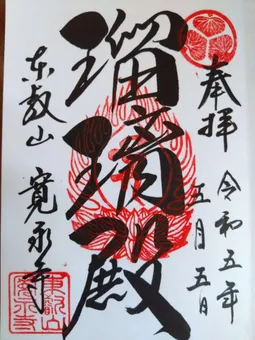 奉拝
令和五年
五月五日
瑠璃殿
東叡山 寛永寺
東叡山
寛永寺